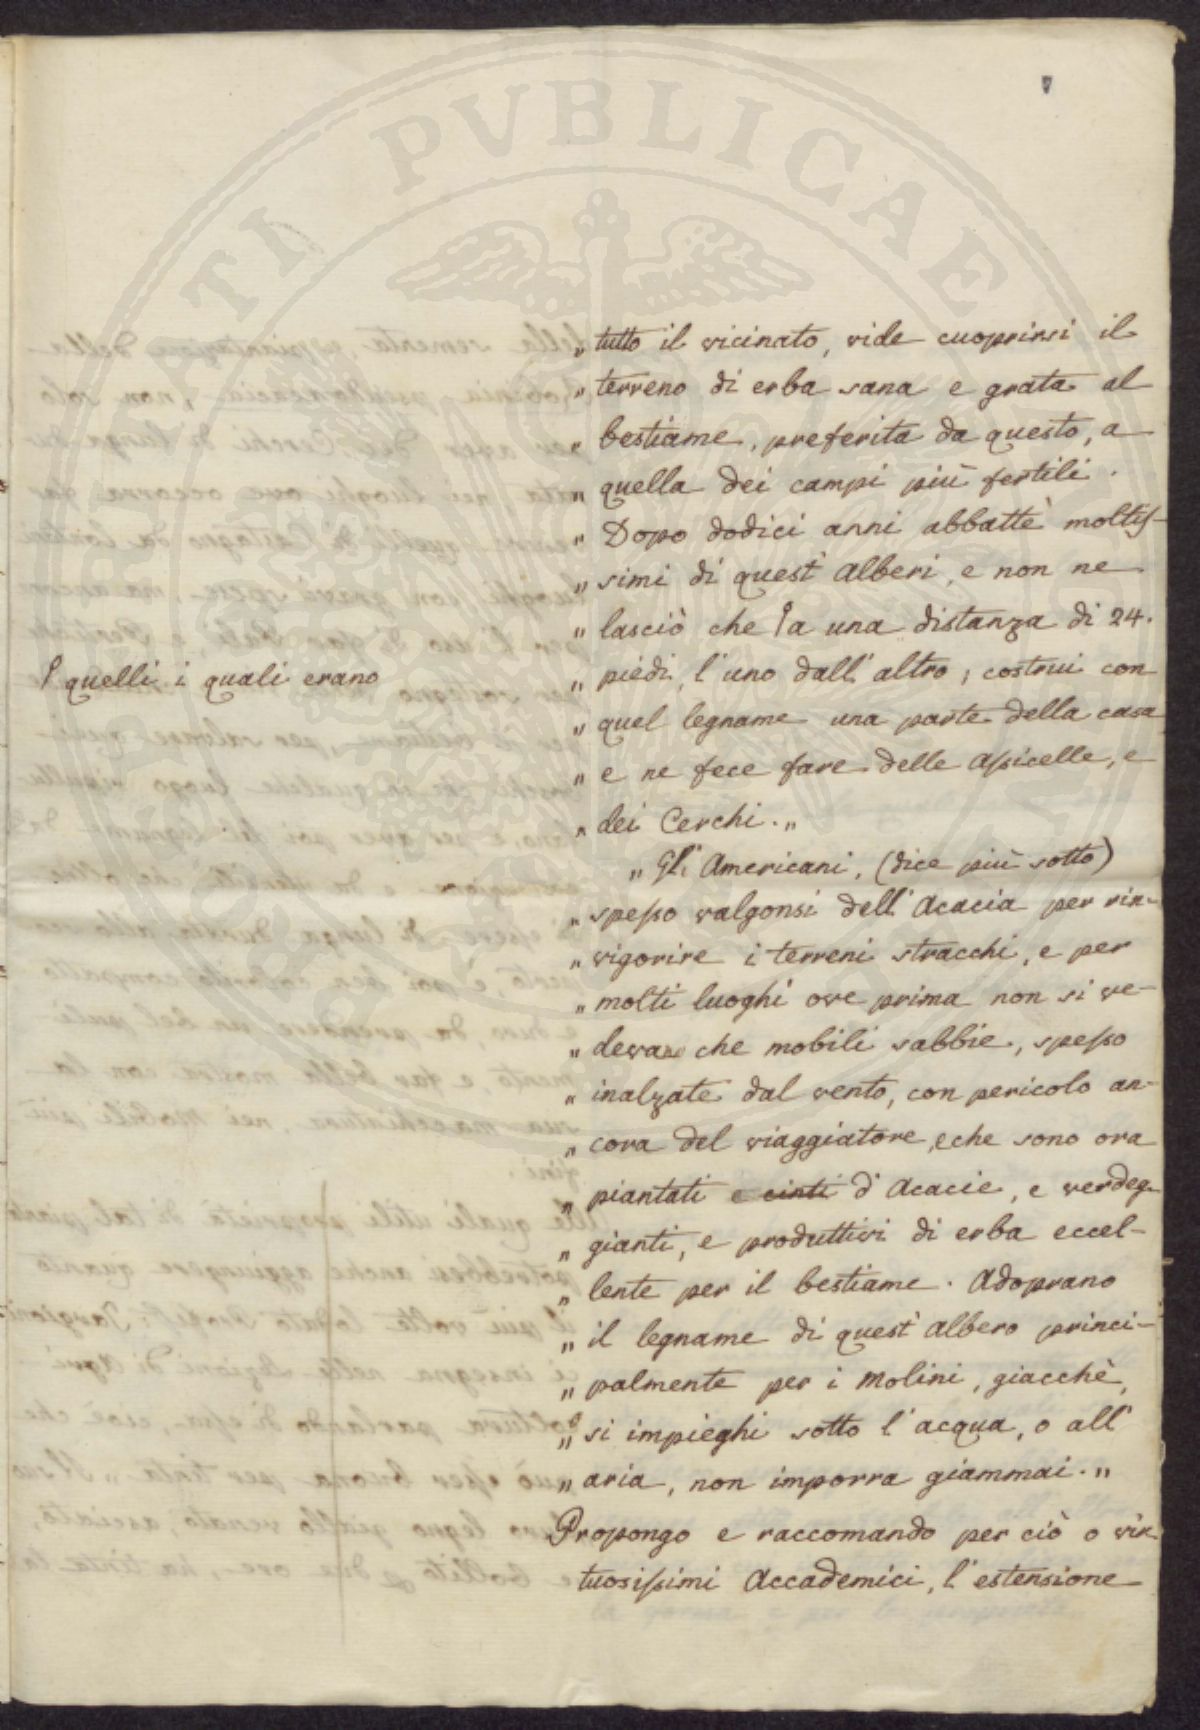 „ tutto il vicinato, vide cuoprirsi il
„ terreno di erba sana e grata al
„ bestiame, preferita da questo, a
„ quella dei campi più fertili.
„ Dopo dodici anni abbattè moltis-
„ simi di quest' Alberi, e non ne
„ lasciò che ſ a una distanza di 24.
ſ quelli i quali erano
„ piedi, l'uno dall' altro; costrui con
„ quel legname una parte della casa
„ e ne fece fare delle Assicelle, e
„ dei Cerchi.„
„ Gli Americani, (dice più sotto)
„ spesso valgonsi dell' Acacia per rin-
„ vigorire i terreni stracchi, e per
„ molti luoghi ove prima non si ve-
„ deva che mobili sabbie, spesso
„ inalzate dal vento, con pericolo an-
„ cora del viaggiatore, e che sono ora
„ piantati e cinti d' Acacie, e verdeg-
„ gianti, e produttivi di erba eccel-
„ lente per il bestiame. Adoprano
„ il legname di quest' Albero princi-
„ palmente per i Molini, giacchè,
„ o si impieghi sotto l' acqua, o all'
„ aria, non imporra giammai.„
Propongo e raccomando per ciò o vir-
tuosissimi Accademici, l' estensione
PVBLICAE